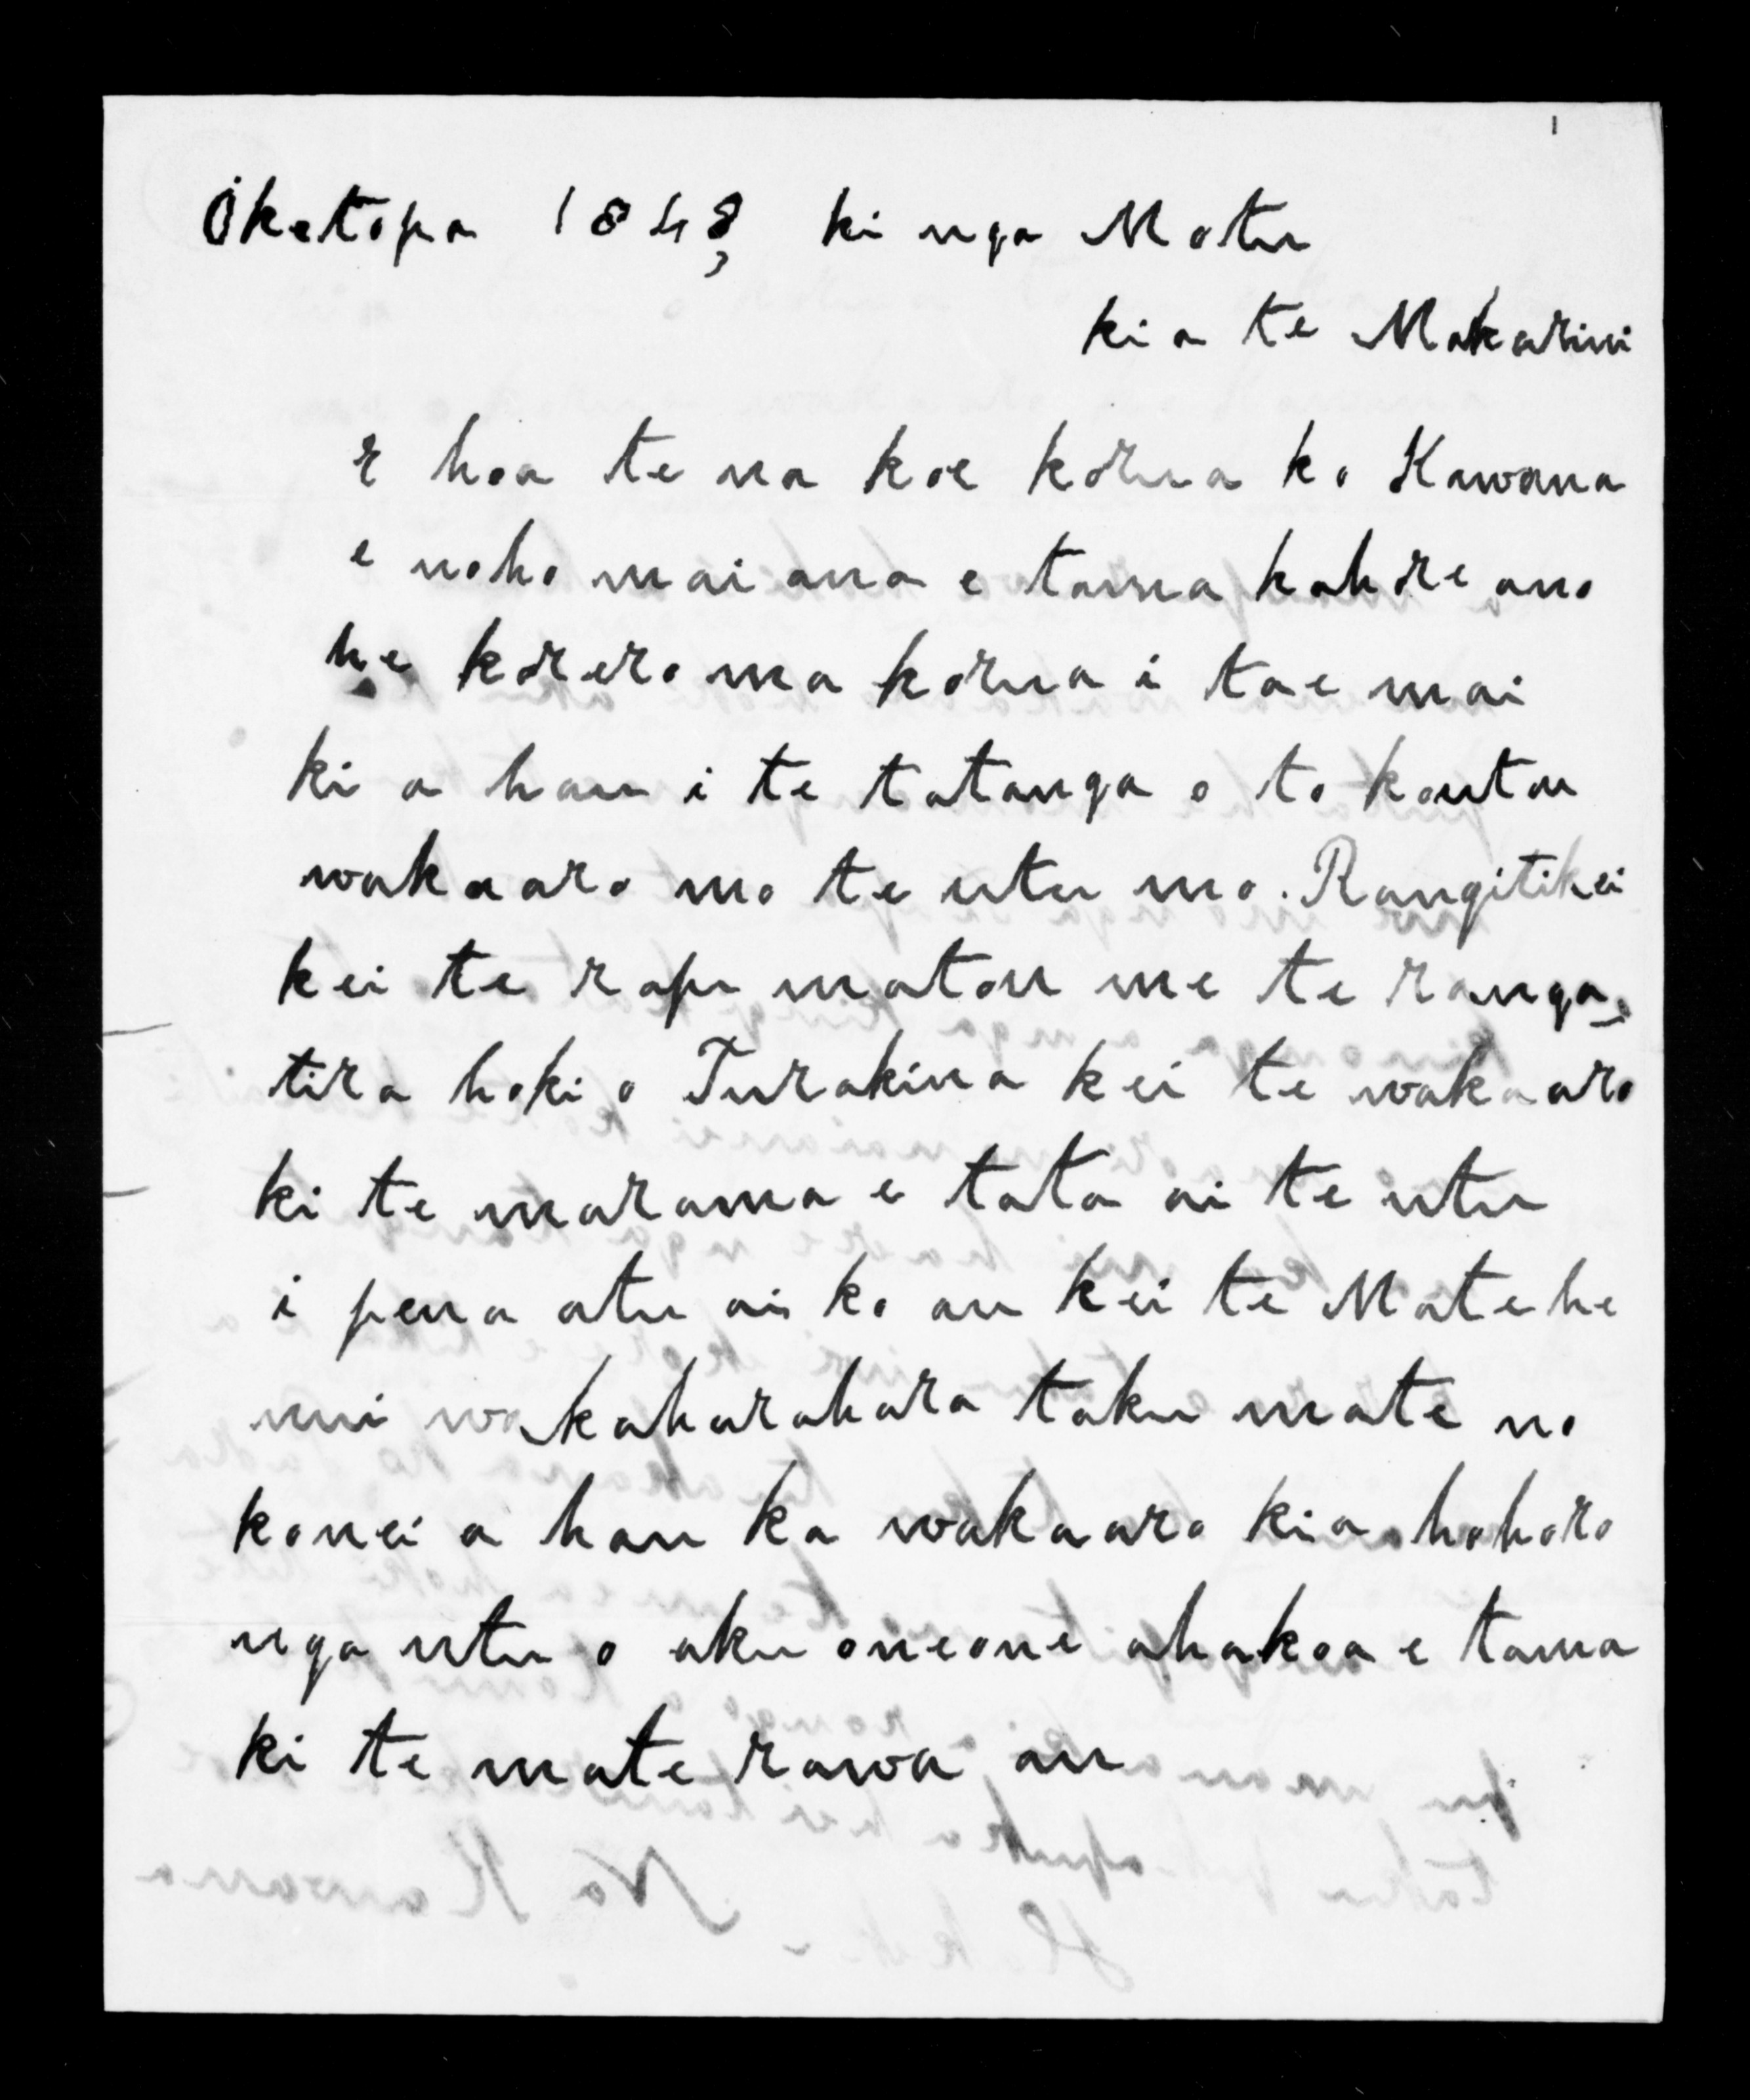 1
Oketopa 1848, ki nga Motu
kia te Makarini
E hoa te na koe korua ko Kawana
e noho mai ana e tama kahore ano
he korero ma korua i tae mai
ki a hau i te tatanga o to koutou
wakaaro mo te utu mo. Rangitikei
kei te rapu matou me te ranga,
tira hoki o Turakina kei te wakaaro
ki te marama e tata ai te utu
i pena atu ai ko au kei te Mate he
nui wakaharahara taku mate no
konei a hau ka wakaaro kia hohoro
nga utu o aku oneone ahakoa e tama
ki te mate rawa au